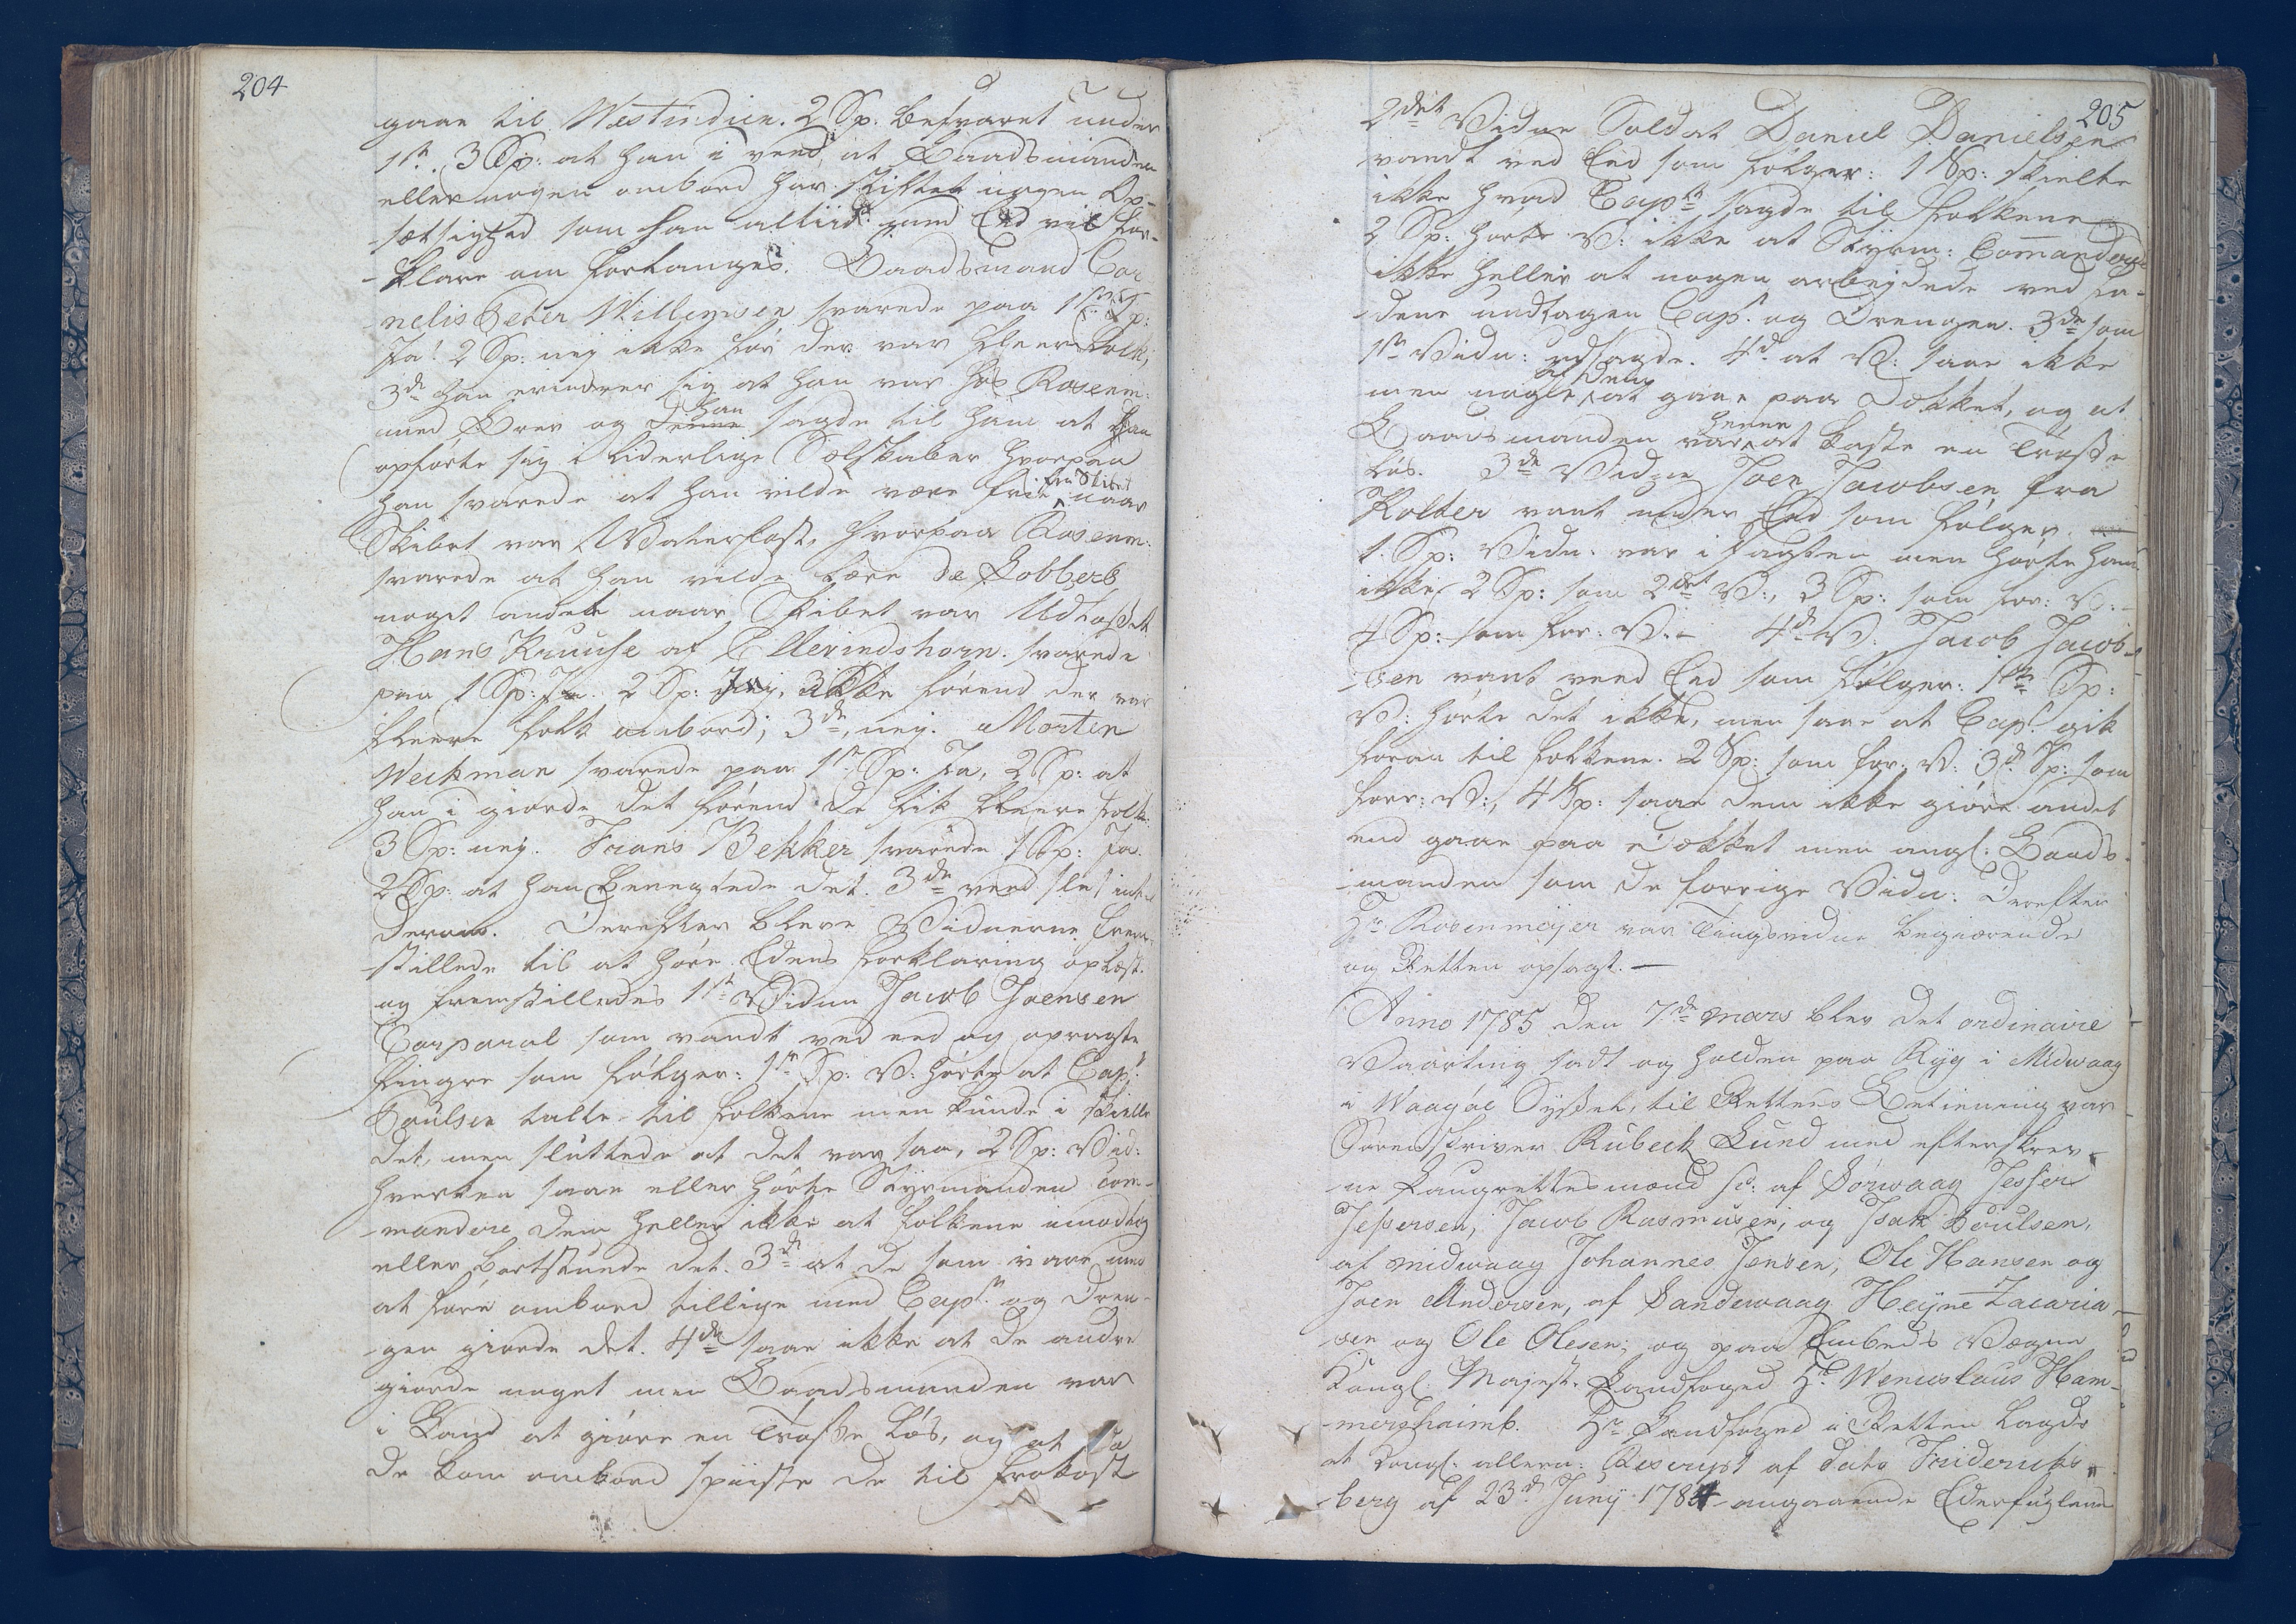 204
gaae til Westindien. 2 Sp. besvaret under
1ste. 3 Sp: at han i veed, at Baadsmanden
eller nogen ombord har stiftet nogen Op-
-sætsighed som han altiid med Eed vil for-
-klare om forlanges. Baadsmand Cor
-nelis Peter Willemsen svarede paa 1ste Sp:
Ja! 2 Sp: nej ikke før der var fleere Folk,
3de han erindrer sig at han var hos Rosenm:
med Brev og denne han sagde til ham at han
opførte sig i liderlige Selskaber hvorpaa
han svarede at han vilde være frie fra Skibet naar
Skibet var Waterfast, hvorpaa Rosenm:
svarede at han vilde lære de Lobberb
noget andet naar Skibet var Udlosset
Hans Kruuse af Ellerindshorn svarede
paa 1 Sp: Ja. 2 Sp: Nej, ikke førend der var
fleere folk ombord; 3de, nej. Morten
Weckman svarede paa 1ste Sp: Ja, 2 Sp: at
han i giorde det førend de fik fleere folk.
3 Sp: nej. Frans Bekker svarede 1 Sp: Ja.
2 Sp: at han benegtede det. 3de veed slet intet
derom. Derefter bleve Vidnerne frem-
-stillede til at høre Edens Forklaring oplæst.
og fremstilledes 1ste Vidne Jacob Joensen
Corporal som vandt ved eed og opragte
fingre som følger: 1ste Sp: V: hørte at Capt:
Poulsen talte til folkene men kunde i skielle
det, men sluttede at det var saa, 2 Sp: Vid:
hverken saae eller hørte Styrmanden com-
-mandere dem heller ikke at folkene imodtog
eller bortstuede det. 3de at de som vare med
at føre ombord tillige med Capt: og Dren-
-gen giorde det. 4de saae ikke at de andre
giorde noget men Baadsmanden var
i Land at giøre en Trosse løs, og at da
de kom ombord spiiste de til frokost
205
2det Vidne Soldat Daniel Danielsen
vandt ved Eed som følger: 1 Sp: skielte
ikke hvad Captn sagde til folkene
2 Sp: hørte V: ikke at Styrm: Comanderede
ikke heller at nogen arbejdede ved La-
-dene undtagen Capt. og Drengen. 3de som
1ste Vidn: udsagde. 4de at V: saae ikke
men nogle af dem at gaae paa Dækket, og at
Baadsmanden var henne at kaste en Trosse
løs. 3de Vidne Joen Jacobsen fra
Kolter vant under Eed som følger.
1. Sp: Vidn: var i Jagten men hørte ham
ikke 2 Sp: som 2det V:, 3 Sp: som for: V:-
4 Sp: som for: V.- 4de V. Jacob Jacob-
-sen vant veed Eed som følger: 1ste Sp:
V: hørte det ikke, men saae at Capt. gik
foran til folkene. 2 Sp: som for: V: 3de Sp: som
forr: V:, 4 Sp: saae dem ikke giøre andet
end gaae paa Dækket men angl: Baads-
-manden som de forrige Vidn: Derefter
Hr Rosenmejer var Tingsvidne begiærende
og Retten opsagt. -
Anno 1785 den 7de Mars blev det ordinaire
Vaarting sadt og holden paa Ryg i Midwaag
i Waagøe Syssel, til Rettens Betiening var
Sorenskriver Rübech Lund med efterskrev-
-ne Laugrettesmænd sc: af Sørwaag Jesper
Jespersen, Jacob Rasmusen, og Isak Poulsen,
af midwaag Johannes Jensen, Ole Hansen og
Joen Andersen, af Sandewaag Heyne Zacaria-
sen og Ole Olesen; og paa Embeds Vegne
Kongl. Majest. Landfoged Hr Wenceslaus Ham-
-mershaimb. Hr Landfoged i Retten lagde
at Kongl: allern: Rescript af Dato Fridericks-
-berg af 23de Junij 1784 angaaende Ederfuglene